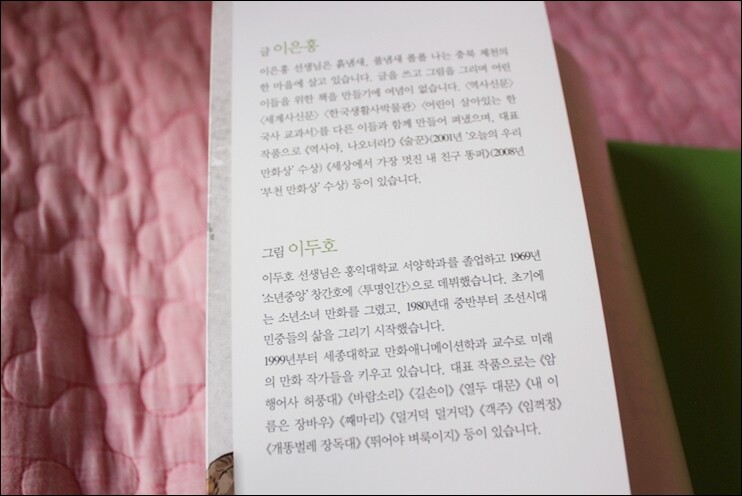 글 이은홍
이은홍 선생님은 흙냄새, 풀냄새 폴폴 나는 충북 제천의
한 마을에 살고 있습니다. 글을 쓰고 그림을 그리며 어린
이들을 위한 책을 만들기에 여념이 없습니다. 〈역사신문〉
〈세계사신문〉 〈한국생활사박물관〉 〈어린이 살아있는 한
국사 교과서〉를 다른 이들과 함께 만들어 펴냈으며, 대표
작품으로 《역사야, 나오너라!》 《술꾼》(2001년 '오늘의 우리
만화상' 수상) 《세상에서 가장 멋진 내 친구 똥퍼》(2008년
'부천 만화상' 수상) 등이 있습니다.
그림 이두호
이두호 선생님은 홍익대학교 서양학과를 졸업하고 1969년
'소년중앙' 창간호에 〈투명인간〉으로 데뷔했습니다. 초기에
는 소년소녀 만화를 그렸고, 1980년대 중반부터 조선시대
민중들의 삶을 그리기 시작했습니다.
1999년부터 세종대학교 만화애니메이션학과 교수로 미래
의 만화 작가들을 키우고 있습니다. 대표 작품으로는 《암
행어사 허풍대》 《바람소리》 《길손이》 《열두 대문》 《내 이
름은 장바우》 《째마리》 《덜거덕 덜거덕》 《객주》 《임꺽정》
《개똥벌레 장독대》 《뛰어야 벼룩이지》 등이 있습니다.